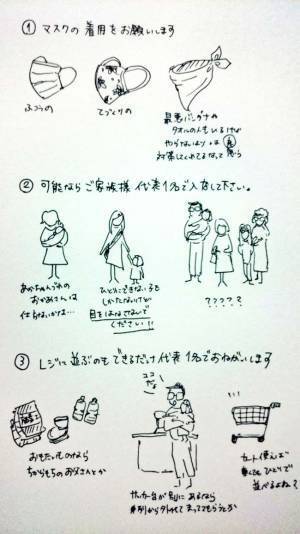 ① マスクの着用をお願いします
ふつうの
てづくりの
最悪バンダナや
タオルの人もいるけど
やらないよりは
対策してくれてるなって思う
② 可能ならご家族様代表1名で入店して下さい。
あかちゃんづれの
おかあさんは
仕方ないかな…
ひとりにできない子を
しかたないけど
目をはなさないで
ください!!
?????
③ レジに並ぶのもできるだけ代表1名でおねがいします
ココ
だよ
おもたいものなら
ちからもちのお父さんとか
サッカー台が別にあるなら
列から外れてまっててもらうとか
カート使えば
重くてもひとりで
並べるよね?